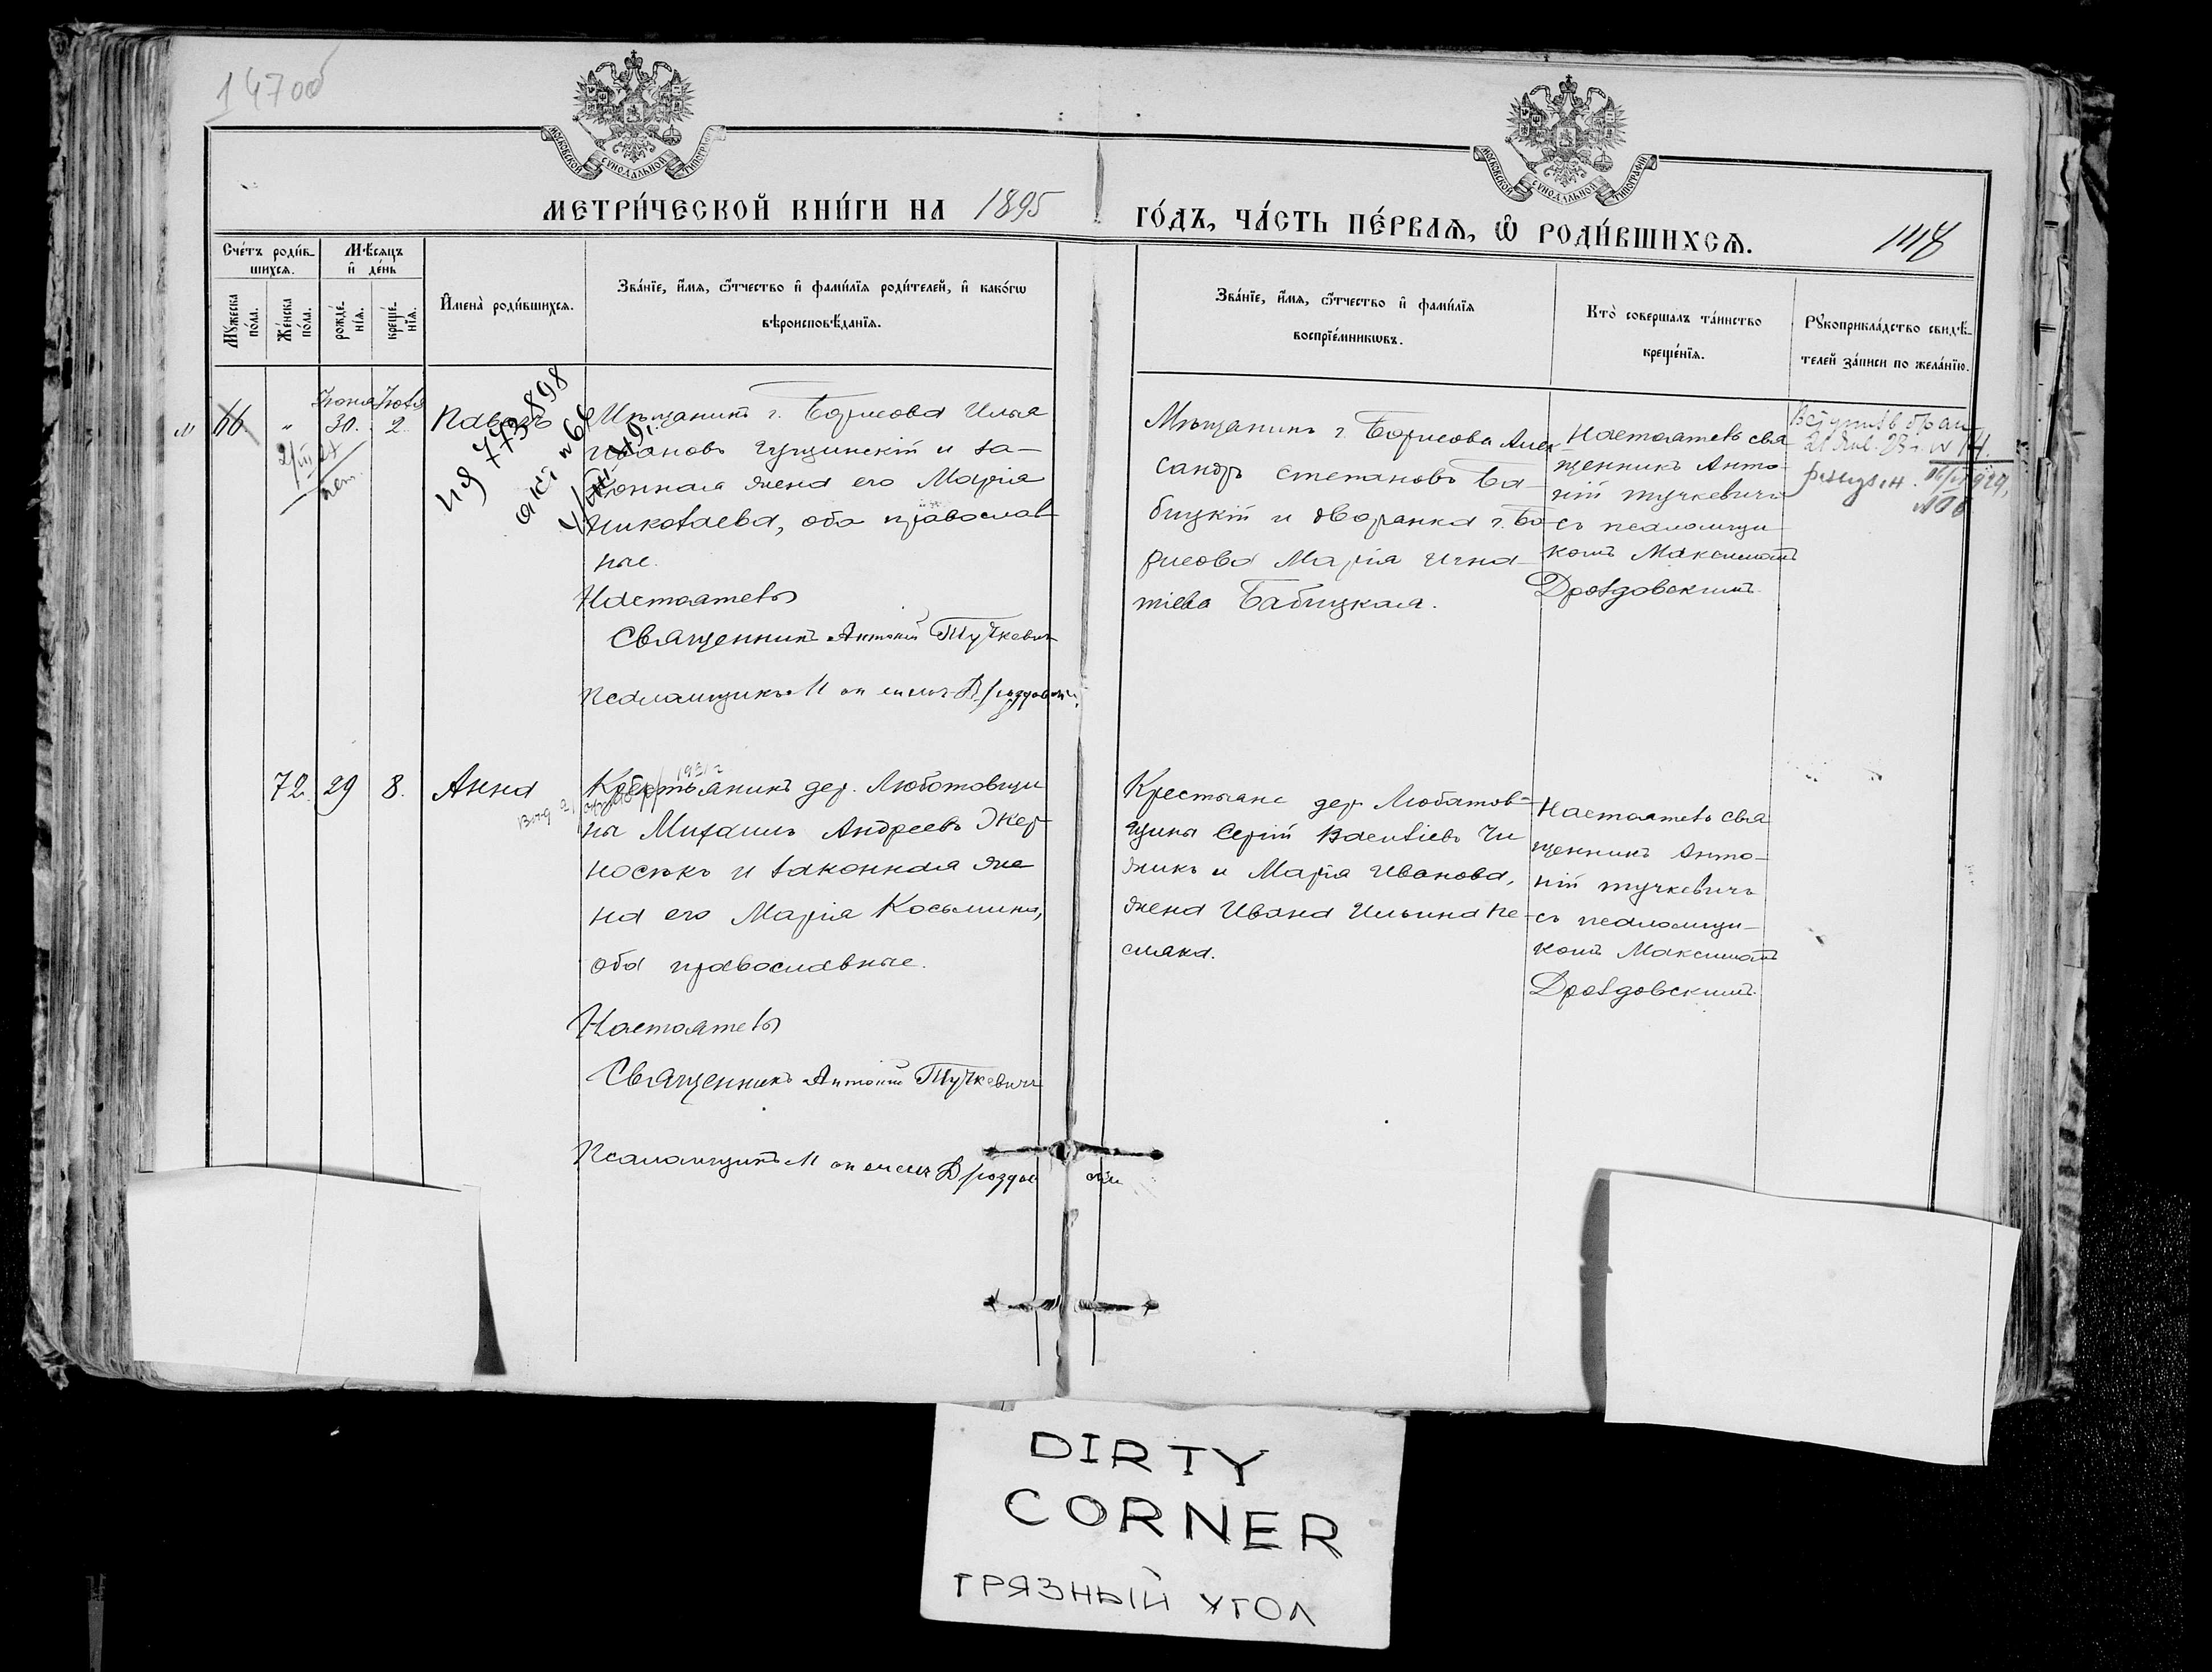 147об
МОСКОВСКОЙ СѴНОДАЛЬНОЙ ТИПОГРАФІИ
МОСКОВСКОЙ СѴНОДАЛЬНОЙ ТИПОГРАФІИ
МЕТРИ́ЧЕСКОЙ КНИ́ГИ НА 1895
ГО́ДЪ, ЧА́СТЬ ПЕ́РВАѦ, Ѽ РОДИ́ВШИХСѦ.
Сче́тъ роди́в-
шихсѧ.
Мѣ́сѧцъ
и҆ де́нь
Мꙋ́жеска по́ла.
Же́нска по́ла.
рожде́-
нїѧ.
креще́-
нїѧ.
И҆мена̀ роди́вшихсѧ.
Зва́нїе, и҆́мѧ, ѻ҆́тчество и҆ фами́лїѧ роди́телей, и҆ како́гѡ
вѣроисповѣ́данїѧ.
Зва́нїе, и҆́мѧ, ѻ҆́тчество и҆ фами́лїѧ
воспрїе́мникѡвъ.
Кто̀ соверша́лъ та́инство
креще́нїѧ.
Рꙋкоприкла́дство свидѣ́-
телей за́писи по жела́нїю.
м 66 „ Іюня 30. Іюля 2. Павелъ
Мѣщанинъ г. Борисова Илья
Ивановъ и за-
конная жена его Марія
Николаева, оба православ-
ные.
Настоятель
Священникъ Антоній Тучкевичъ
Псаломщикъ Максимъ Дроздовскій
ия 773898
акт № 66
Мѣщанинъ г. Борисова Алек-
сандръ Степановъ Ба-
бицкій и дворянка г. Бо-
рисова Марія Игна-
тіева Бабицкая.
Настоятель свя-
щенникъ Анто-
ній Тучкевичъ
съ псаломщи-
комъ Максимомъ
Дроздовскимъ.
72. 29 8. Анна
Крестьянинъ дер. Любатовщи-
ны Михаилъ Андреевъ
и законная же-
на его Марія Косьмина,
оба православные.
Настоятель
Священникъ Антоній Тучкевичъ
Псаломщикъ Максимъ Дроздовскій
Крестьяне дер. Любатов-
щины Сергій Васильевъ Чи-
жикъ и Марія Иванова,
жена Ивана Ильина Пе-
сляка.
Настоятель свя-
щенникъ Анто-
ній Тучкевичъ
съ псаломщи-
комъ Максимомъ
Дроздовскимъ.
DIRTY
CORNER
ГРЯЗНЫЙ УГОЛ